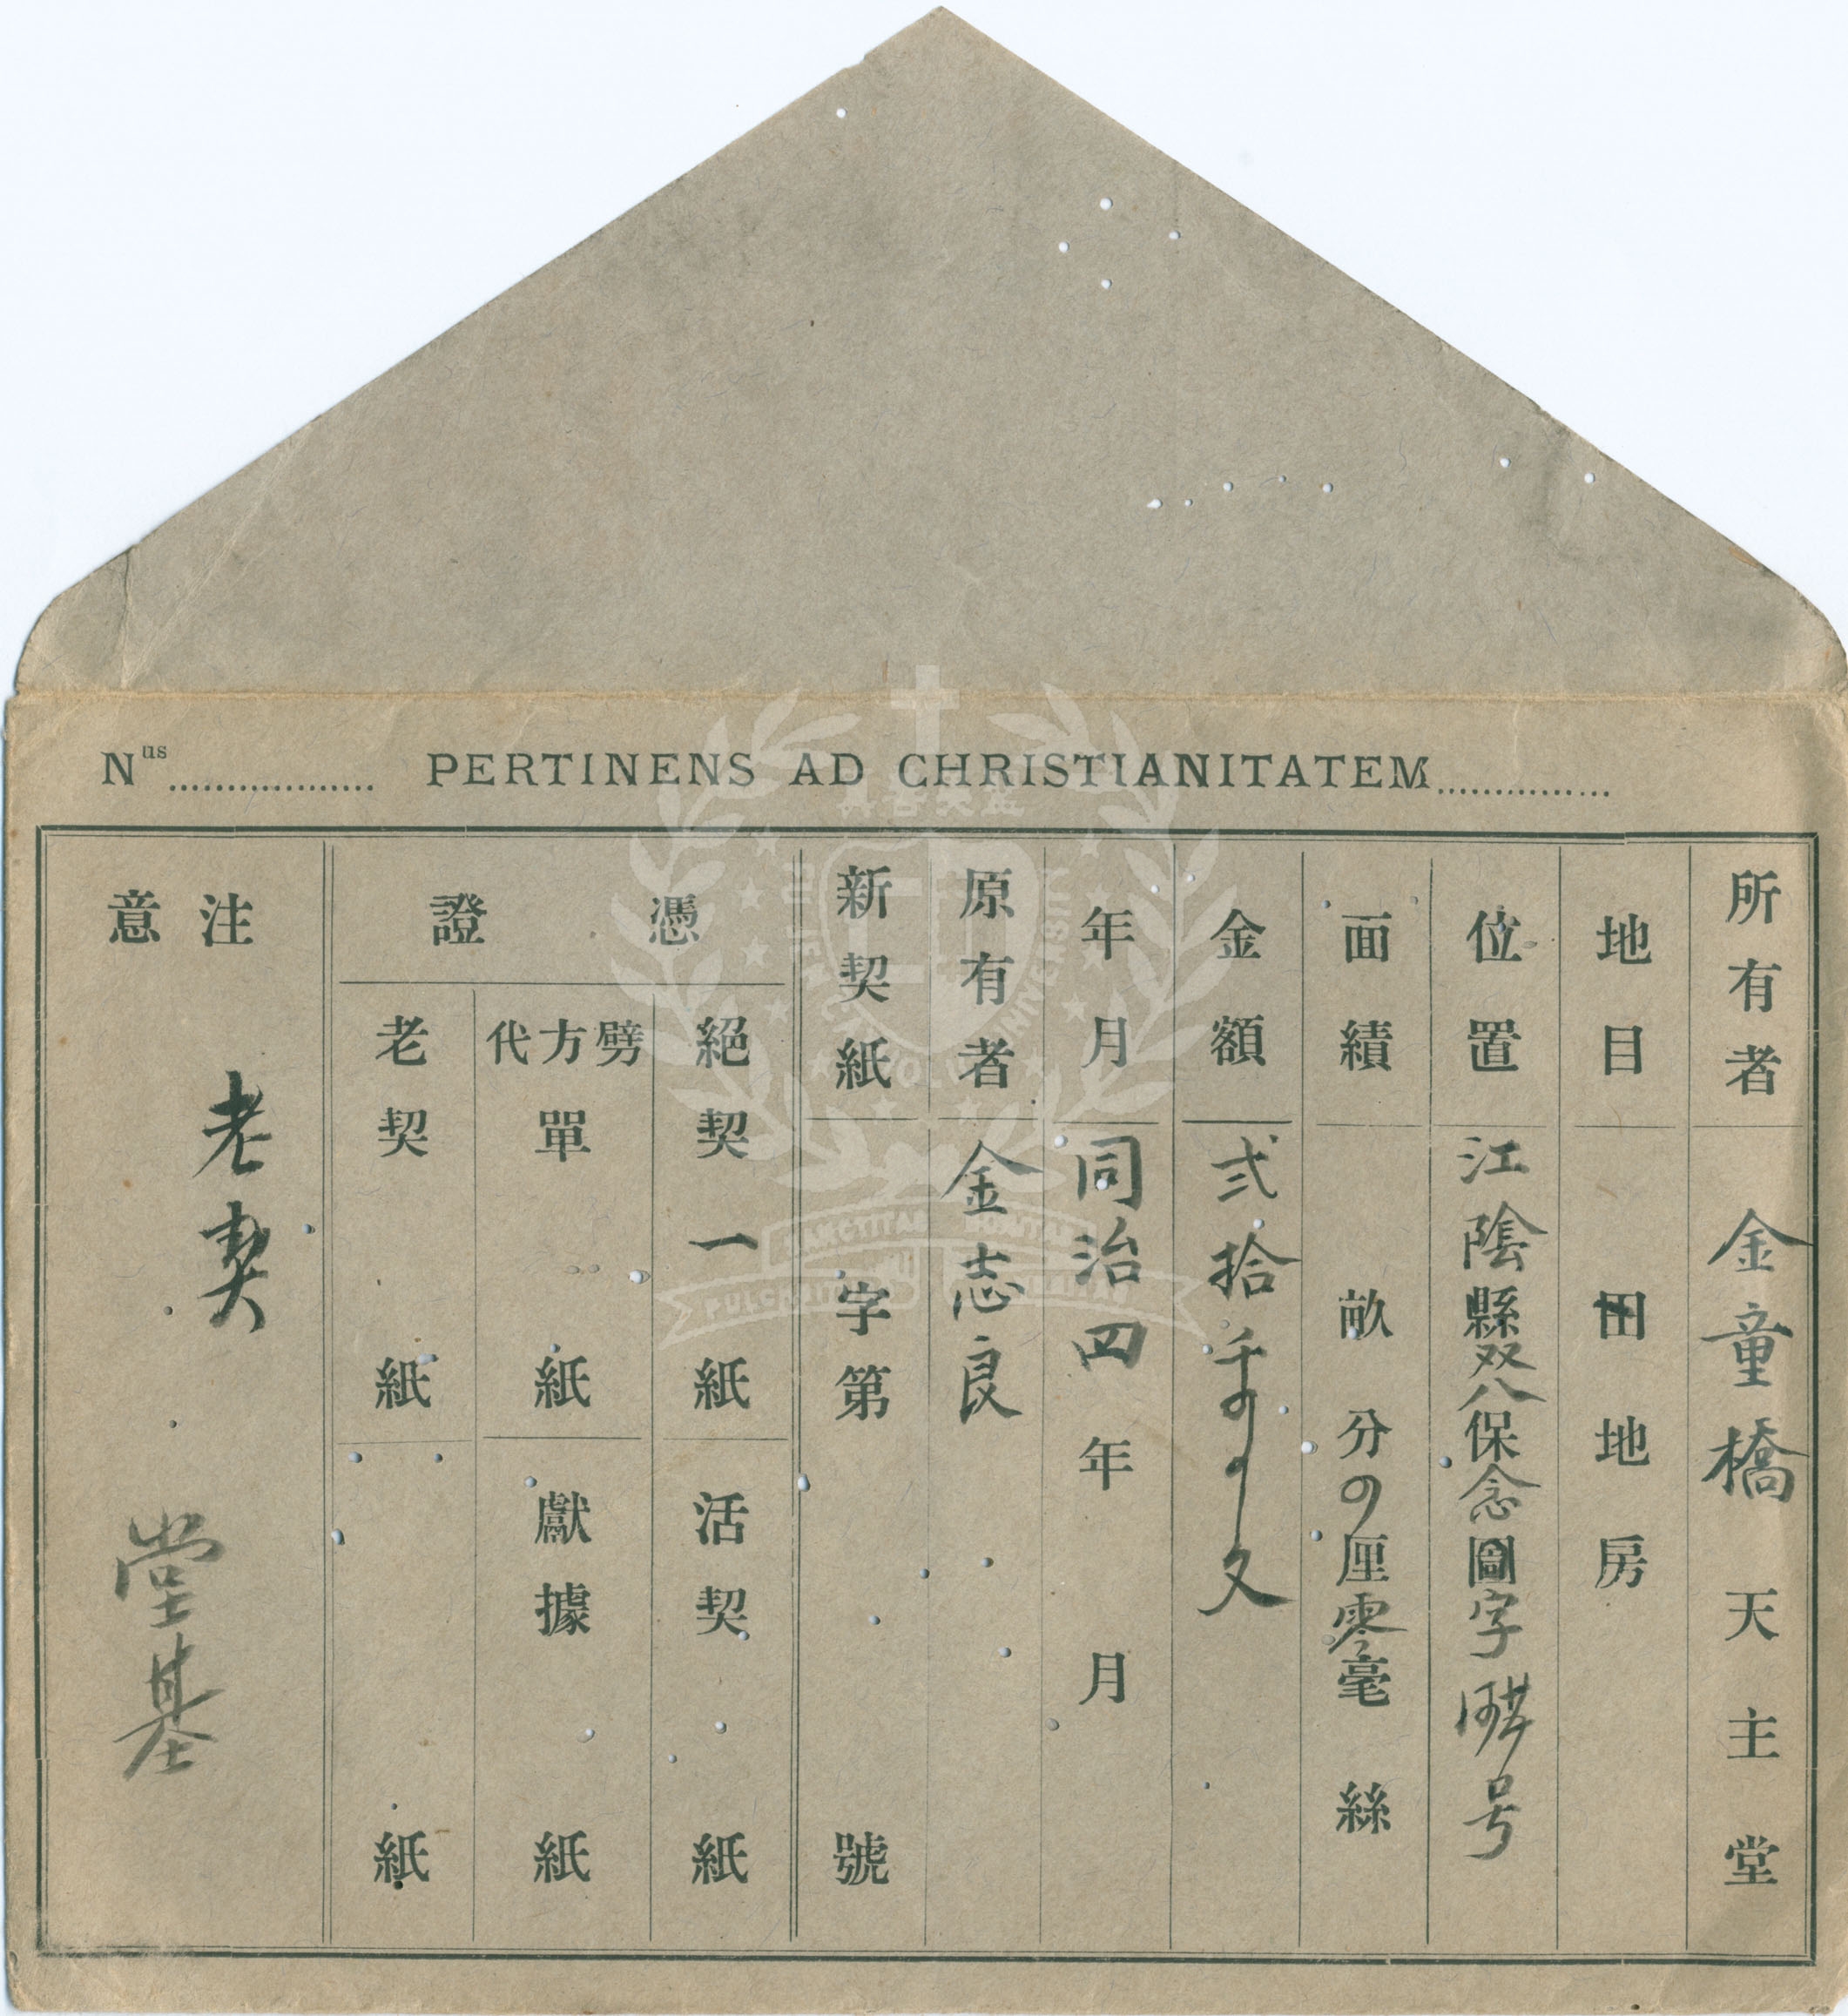 Nus.................. PERTINENS AD CHRISTIANITATEM...............
所有者 金童橋天主堂
地目 田地房
位置 江陰縣双八保念圖字 号
面績 畝 分 厘零毫 絲
金額 弍拾千 文
年月 同治四年 月
原有者 金志良
新契紙 字第 號
憑證
絕契 一紙
活契 紙
劈方代單 紙
獻據 紙
老契 紙
紙
注意
老契
堂基